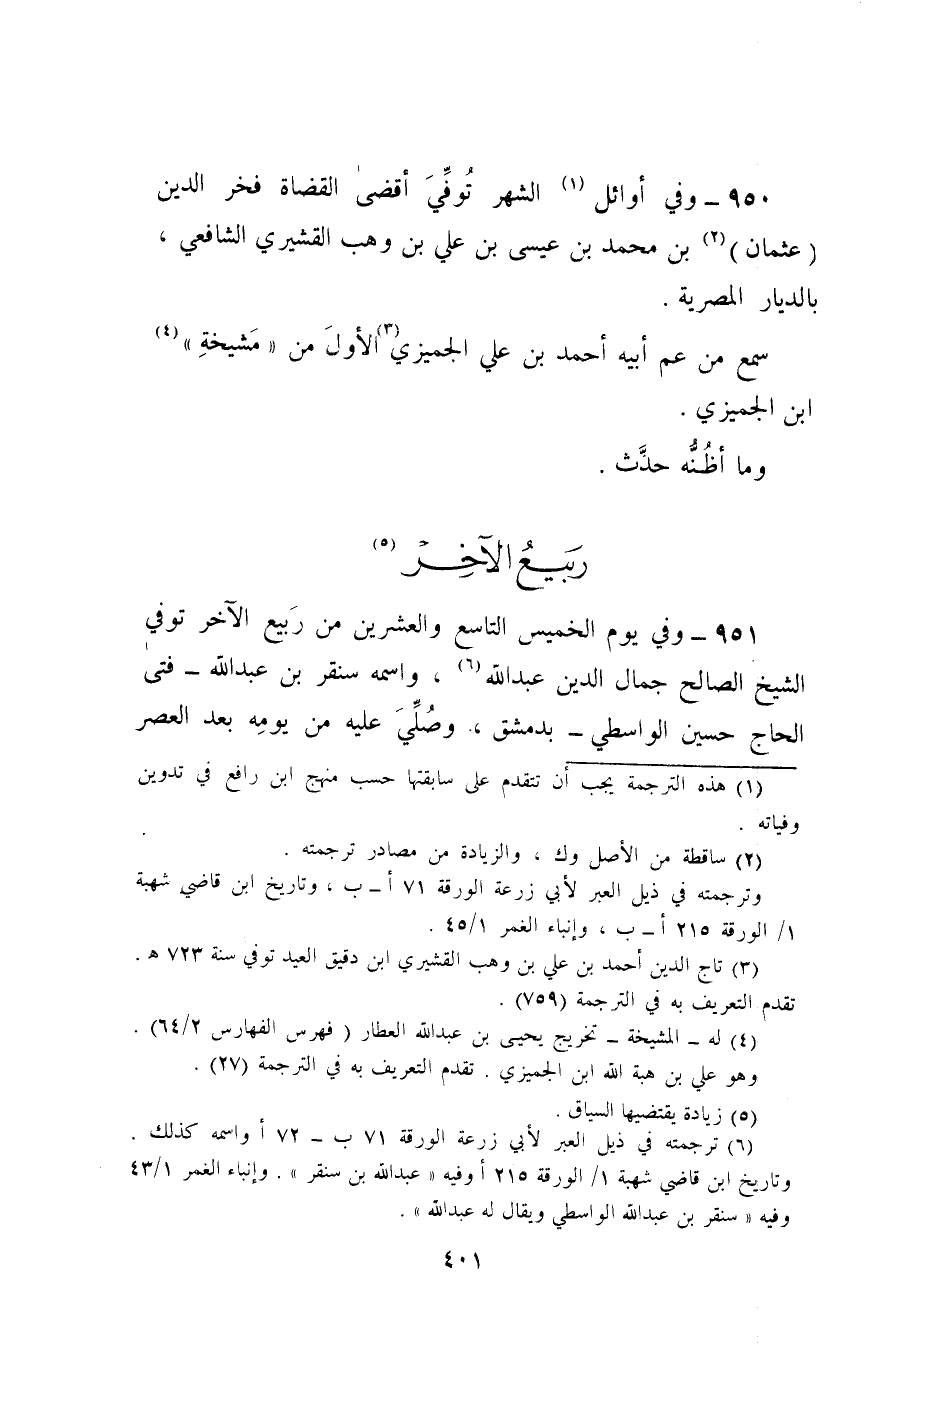 ٩٥٠ ــ وفي أوائل (١) الشهر تُوفِّيَ أقضىٰ القضاة فخر الدين
( عثمان ) (٢) بن محمد بن عيسى بن علي بن وهب القشيري الشافعي ،
بالديار المصرية .
سمع من عم أبيه أحمد بن علي الجميزي (٣) الأولَ من « مَشيخةِ » (٤)
ابن الجميزي .
وما أظُنُّه حدَّث .
رَبيعُ الآخِر (٥)
٩٥١ ــ وفي يوم الخميس التاسع والعشرين من رَبيع الآخر توفي
الشيخ الصالح جمال الدين عبدالله (٦) ، واسمه سنقر بن عبدالله ــ فتىٰ
الحاج حسين الواسطي ــ بدمشق ، وصُلِّيَ عليه من يومِه بعد العصر
(١) هذه الترجمة يجب أن تتقدم على سابقتها حسب منهج ابن رافع في تدوين
وفياته .
(٢) ساقطة من الأصل وك ، والزيادة من مصادر ترجمته .
وترجمته في ذيل العبر لأبي زرعة الورقة ٧١ أ ــ ب ، وتاريخ ابن قاضي شهبة
١/ الورقة ٢١٥ أ ــ ب ، وإنباء الغمر ٤٥/١ .
(٣) تاج الدين أحمد بن علي بن وهب القشيري ابن دقيق العيد توفي سنة ٧٢٣ هـ .
تقدم التعريف به في الترجمة (٧٥٩) .
(٤) له ــ المشيخة ــ تخريج يحيى بن عبدالله العطار ( فهرس الفهارس ٦٤/٢) .
وهو علي بن هبة الله ابن الجميزي . تقدم التعريف به في الترجمة (٢٧) .
(٥) زيادة يقتضيها السياق .
(٦) ترجمته في ذيل العبر لأبي زرعة الورقة ٧١ ب ــ ٧٢ أ واسمه كذلك .
وتاريخ ابن قاضي شهبة ١/ الورقة ٢١٥ أ وفيه « عبدالله بن سنقر » . وإنباء الغمر ٤٣/١
وفيه « سنقر بن عبدالله الواسطي ويقال له عبدالله » .
٤٠١